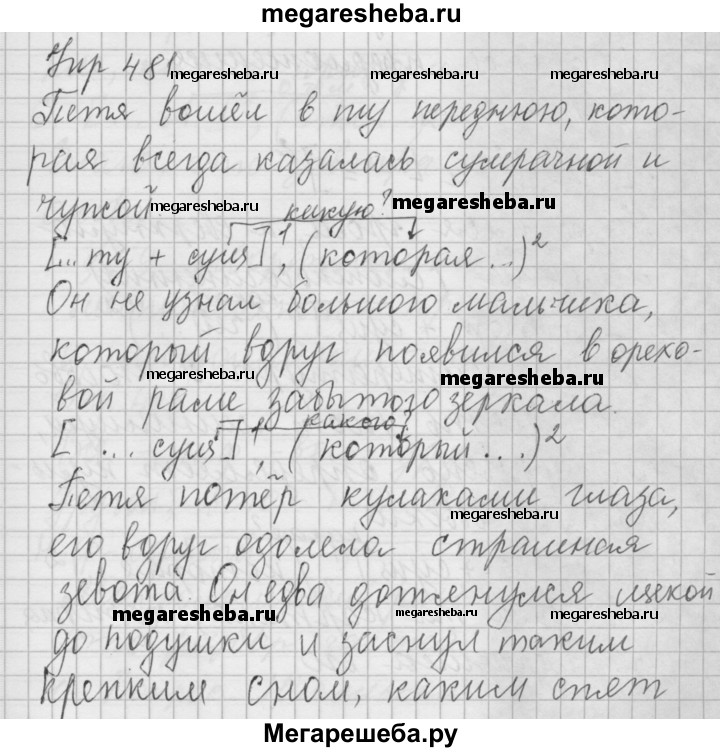 megaresheba.ru
Упр 481 megaresheba.ru megaresheba.ru
Петя вошёл в ту переднюю, кото-
рая всегда казалась сумрачной и
чужой. megaresheba.ru какую? megaresheba.ru
[...ту + сущ]¹, (которая...)²
Он не узнал большого мальчика,
который вдруг появился в орехо-
megaresheba.ru megaresheba.ru
вой раме забытого зеркала.
какого
[ ... сущ]¹, (который...)²
Петя потёр кулаками глаза,
megaresheba.ru
его вдруг одолела страшная
зевота. Он едва дотянулся щекой
megaresheba.ru megaresheba.ru megaresheba.ru
до подушки и заснул таким
крепким сном, каким спят
Мегарешеба.ру